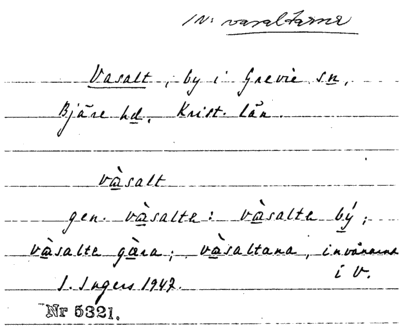 IN: vasaltarne
Vasalt, by i Grevie sn,
Bjäre hd. Krist. län.
vàsalt
gen. vàsalta: vàsalta bý;
vàsalta gàra; vàsaltana, invånarna
i V.
I. Ingers 1947.
Nr 5321.